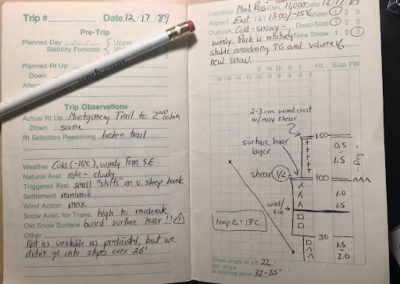 Trip # Date 12.17.89
Pre-Trip
Planned Day
Stability Forecast
Upper
Middle
Planned Rt Up
Down
Altern
Trip Observations
Actual Rt Up Montgomery Trail to 2nd cabin
Down same
Rt Selection Reasoning broken trail
Weather Cold (-10c), windy from SE
Natural Aval n/a - cloudy
Triggered Aval small "shifts" on v. steep bank
Settlement minimal
Wind Action mod.
Snow Avail. for Trans. high to moderate
Old Snow Surface buried surface hoar !!
Other
Not as unstable as predicted, but we
didn't go onto slopes over 25°
Location
Pass Elev 11,000
Aspect East T&T 13:00/-15°C
Outlook Cold - snowy -
windy. Pack is relatively
stable considering TG and volume of
new snow.
Shear
Deep Slab
New Snow 1 2 3
V IV III II I
Ht. Size FW
2-3 cm wind crust
w/ easy shear
150
surface hoar
layer
0.5
1.5
shear 1/2
100
1.0
1.5
wind/
sun
30
1.5
2.0
temp Δ = 13°C
Slope angle at pit 22°
Est. angle
at starting zone 32-35°